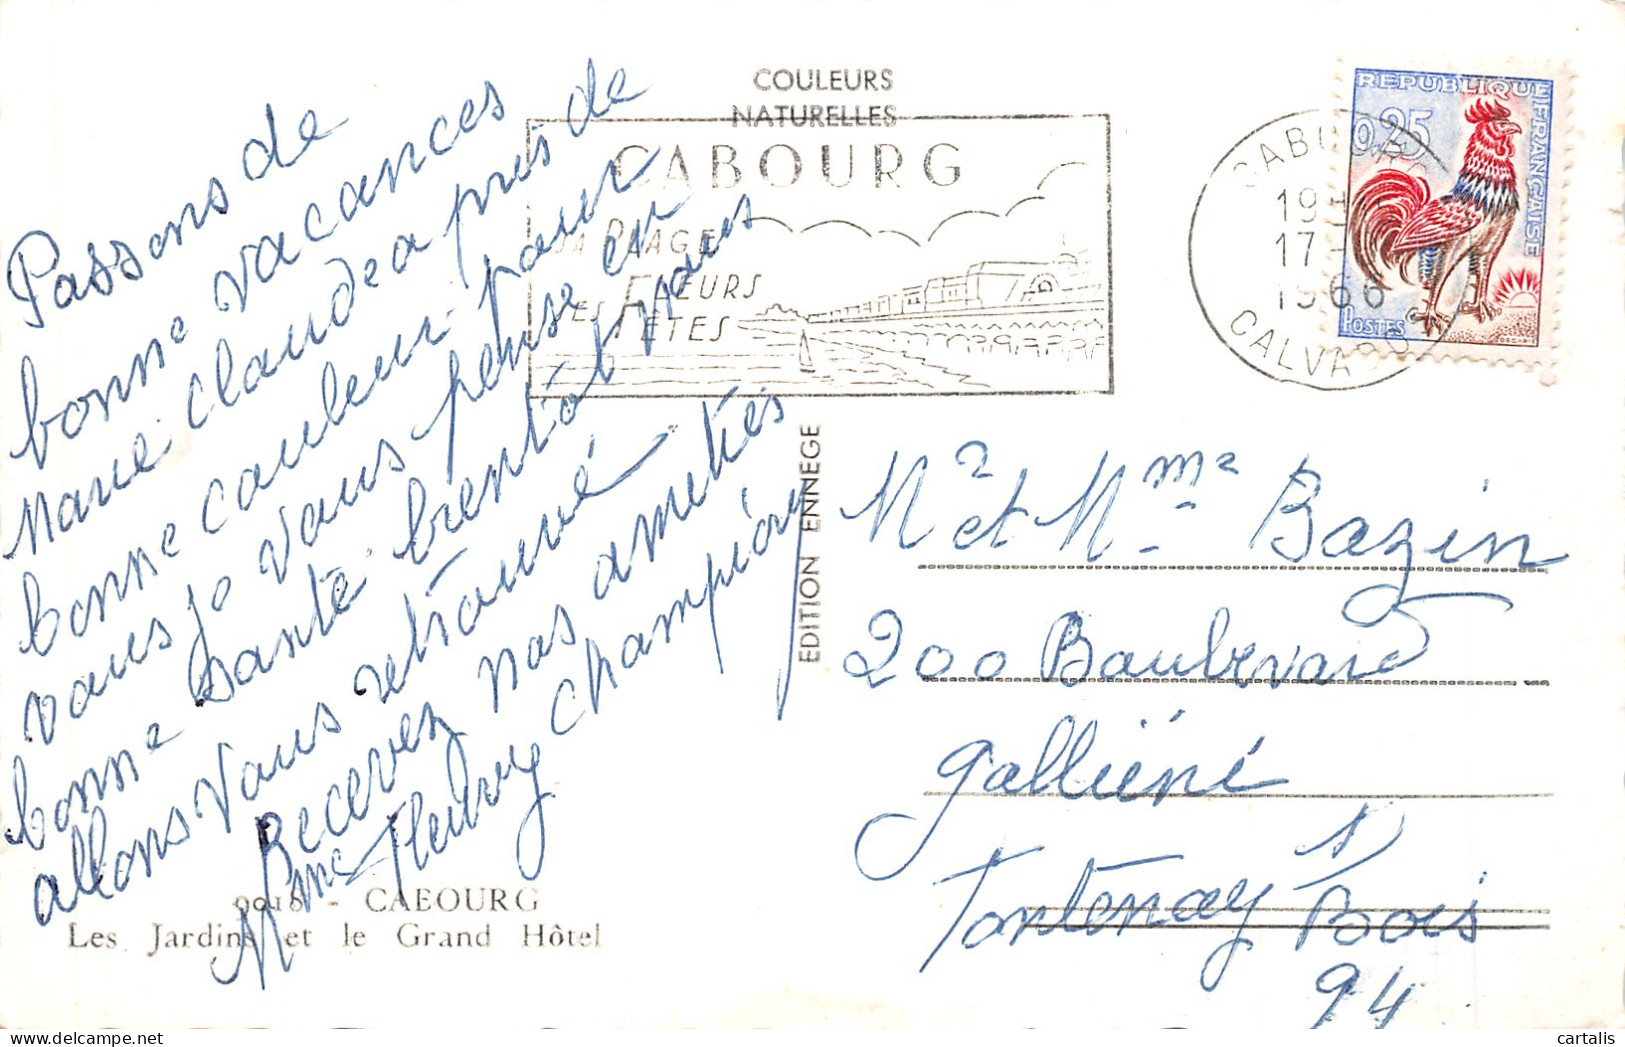 COULEURS
NATURELLES
CABOURG
SA PLAGE
SES FLEURS
SES FETES
CABOURG
17 -
1966
CALVADOS
REPUBLIQUE FRANÇAISE
0,25
POSTES
DECARIS
Passons de
bonne vacances
Marie Claude a pris de
bonne couleur pour
vous je vous pense en
bonne santé bientôt nous
allons vous retrouvé
Recevez nos amitiés
Mme Fleury Champion
EDITION ENNEGE
Mr et Mme Bazin
200 Boulevard
Galliéni
Fontenay s/ Bois
94
9018 - CABOURG
Les Jardins et le Grand Hôtel
cartalis
delcampe.net